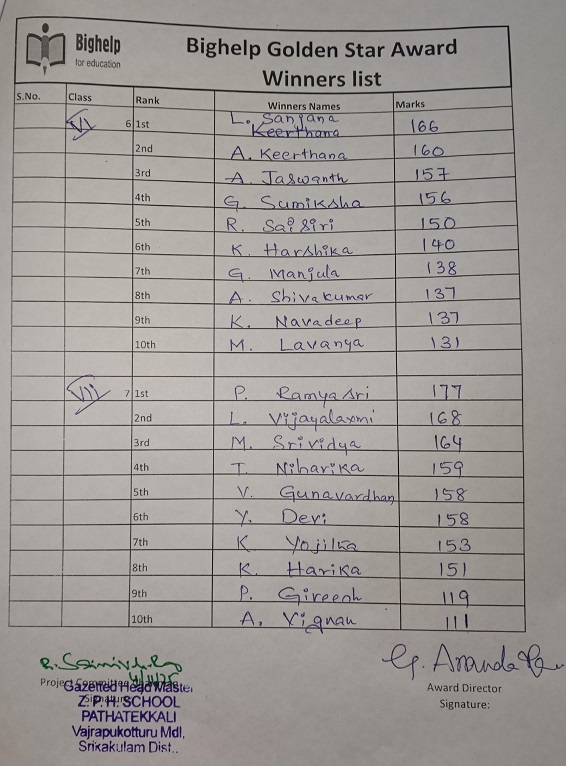 Bighelp
for education
Bighelp Golden Star Award
Winners list
S.No. Class Rank Winners Names Marks
VI 6 1st L. Sanjana Keerthana 166
2nd A. Keerthana 160
3rd A. Jaswanth 157
4th G. Sumiksha 156
5th R. Sai Siri 150
6th K. Harshika 140
7th G. Manjula 138
8th A. Shivakumar 137
9th K. Navadeep 137
10th M. Lavanya 131
VII 7 1st P. Ramya Sri 177
2nd L. Vijayalaxmi 168
3rd M. Srividya 164
4th T. Niharika 159
5th V. Gunavardhan 158
6th Y. Devi 158
7th K Yojitha 153
8th K. Harika 151
9th P. Gireesh 119
10th A. Vignan 111
G. Ananda
Project
Gazetted Head Master
Z.P.H. SCHOOL
PATHATEKKALI
Vajrapukotturu Mdl,
Srikakulam Dist..
Award Director
Signature: